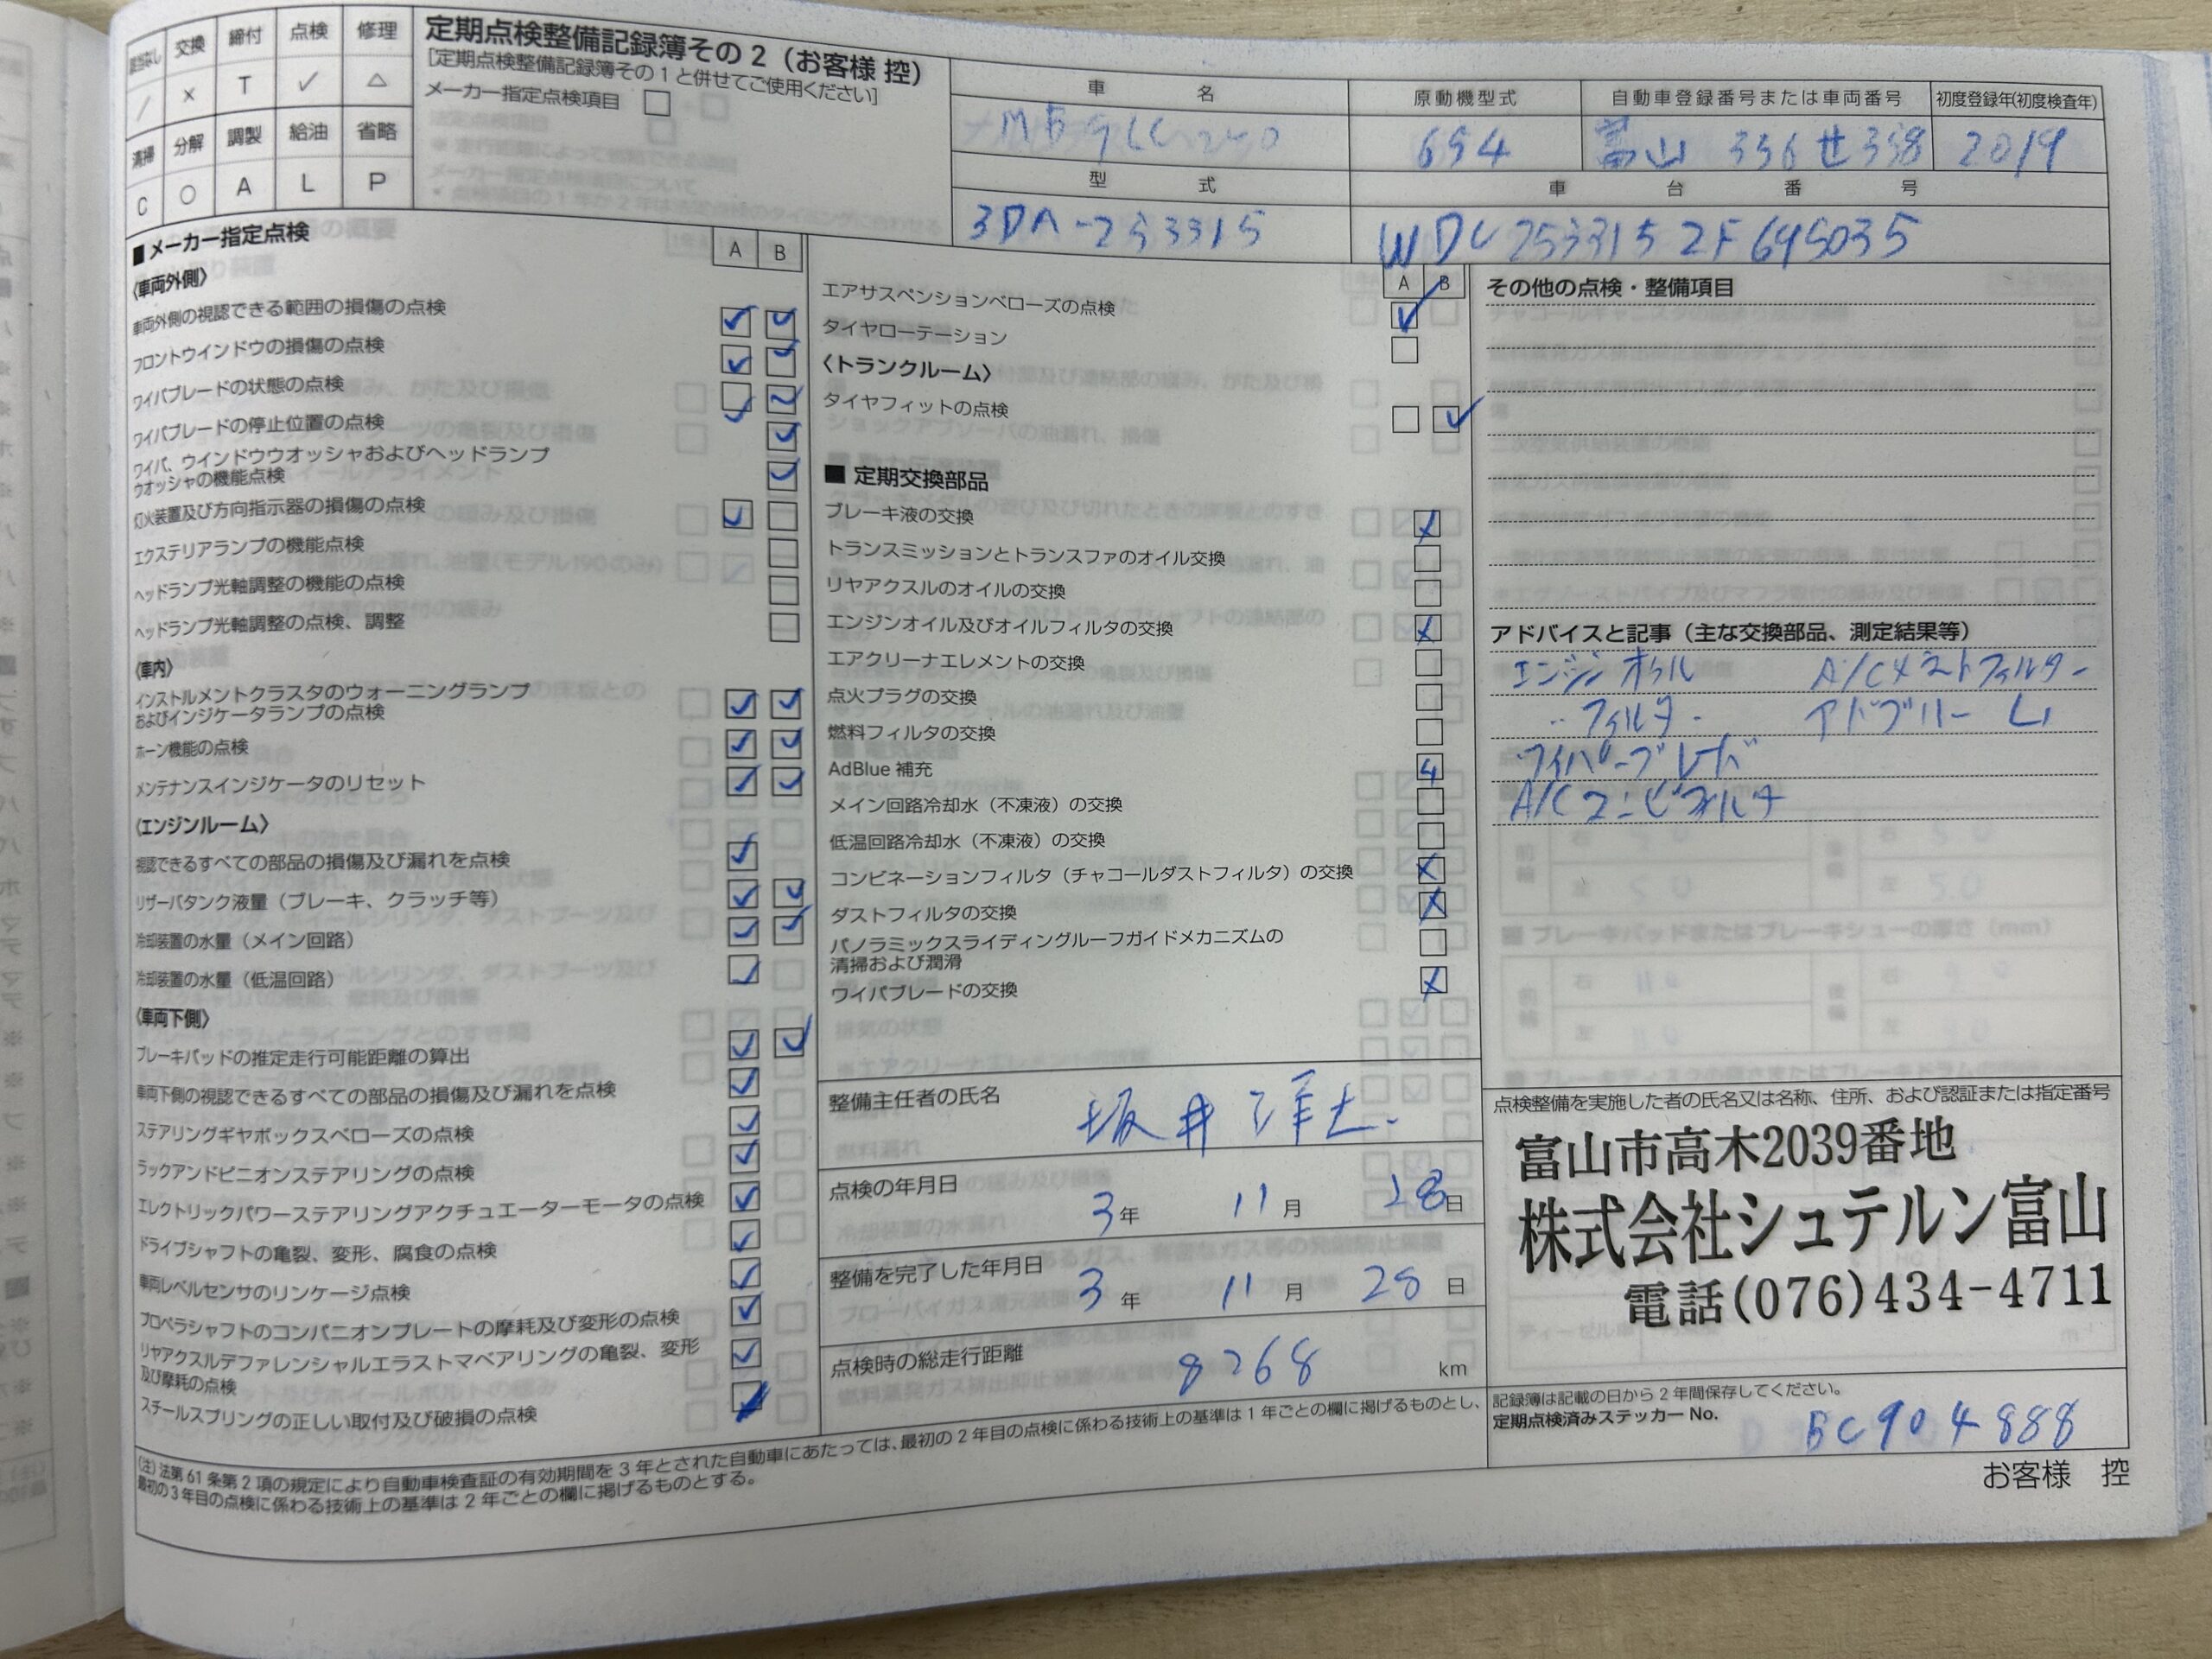 該当なし 交換 締付 点検 修理
/ × T ✓ △
清掃 分解 調製 給油 省略
C ○ A L P
定期点検整備記録簿その2（お客様 控）
［定期点検整備記録簿その1と併せてご使用ください］
メーカー指定点検項目 □
車 名
原動機型式
自動車登録番号または車両番号
初度登録年(初度検査年)
654
富山 336せ338
2019
型 式
車 台 番 号
3DA-253315
WDC2533152F645035
■メーカー指定点検
A B
〈車両外側〉
車両外側の視認できる範囲の損傷の点検
フロントウインドウの損傷の点検
ワイパブレードの状態の点検
ワイパブレードの停止位置の点検
ワイパ、ウインドウウオッシャおよびヘッドランプ
ウオッシャの機能点検
灯火装置及び方向指示器の損傷の点検
エクステリアランプの機能点検
ヘッドランプ光軸調整の機能の点検
ヘッドランプ光軸調整の点検、調整
〈車内〉
インストルメントクラスタのウォーニングランプ
およびインジケータランプの点検
ホーン機能の点検
メンテナンスインジケータのリセット
〈エンジンルーム〉
視認できるすべての部品の損傷及び漏れを点検
リザーバタンク液量（ブレーキ、クラッチ等）
冷却装置の水量（メイン回路）
冷却装置の水量（低温回路）
〈車両下側〉
ブレーキパッドの推定走行可能距離の算出
車両下側の視認できるすべての部品の損傷及び漏れを点検
ステアリングギヤボックスベローズの点検
ラックアンドピニオンステアリングの点検
エレクトリックパワーステアリングアクチュエーターモータの点検
ドライブシャフトの亀裂、変形、腐食の点検
車両レベルセンサのリンケージ点検
プロペラシャフトのコンパニオンプレートの摩耗及び変形の点検
リヤアクスルデファレンシャルエラストマベアリングの亀裂、変形
及び摩耗の点検
スチールスプリングの正しい取付及び破損の点検
A B
エアサスペンションベローズの点検
タイヤローテーション
〈トランクルーム〉
タイヤフィットの点検
■ 定期交換部品
ブレーキ液の交換 ×
トランスミッションとトランスファのオイル交換
リヤアクスルのオイルの交換
エンジンオイル及びオイルフィルタの交換 ×
エアクリーナエレメントの交換
点火プラグの交換
燃料フィルタの交換
AdBlue 補充
メイン回路冷却水（不凍液）の交換
低温回路冷却水（不凍液）の交換
コンビネーションフィルタ（チャコールダストフィルタ）の交換 ×
ダストフィルタの交換 ×
パノラミックスライディングルーフガイドメカニズムの
清掃および潤滑
ワイパブレードの交換 ×
整備主任者の氏名
坂井
点検の年月日 3年 11月 28日
整備を完了した年月日 3年 11月 28日
点検時の総走行距離 8268 km
その他の点検・整備項目
アドバイスと記事（主な交換部品、測定結果等）
エンジンオイル A/Cダストフィルター
〃 フィルター アドブルー
ワイパーブレード
A/Cコンビフィルタ
点検整備を実施した者の氏名又は名称、住所、および認証または指定番号
富山市高木2039番地
株式会社シュテルン富山
電話(076)434-4711
記録簿は記載の日から2年間保存してください。
定期点検済みステッカー No. BC904888
(注) 法第61条第2項の規定により自動車検査証の有効期間を3年とされた自動車にあたっては、最初の2年目の点検に係わる技術上の基準は1年ごとの欄に掲げるものとし、
最初の3年目の点検に係わる技術上の基準は2年ごとの欄に掲げるものとする。
お客様 控